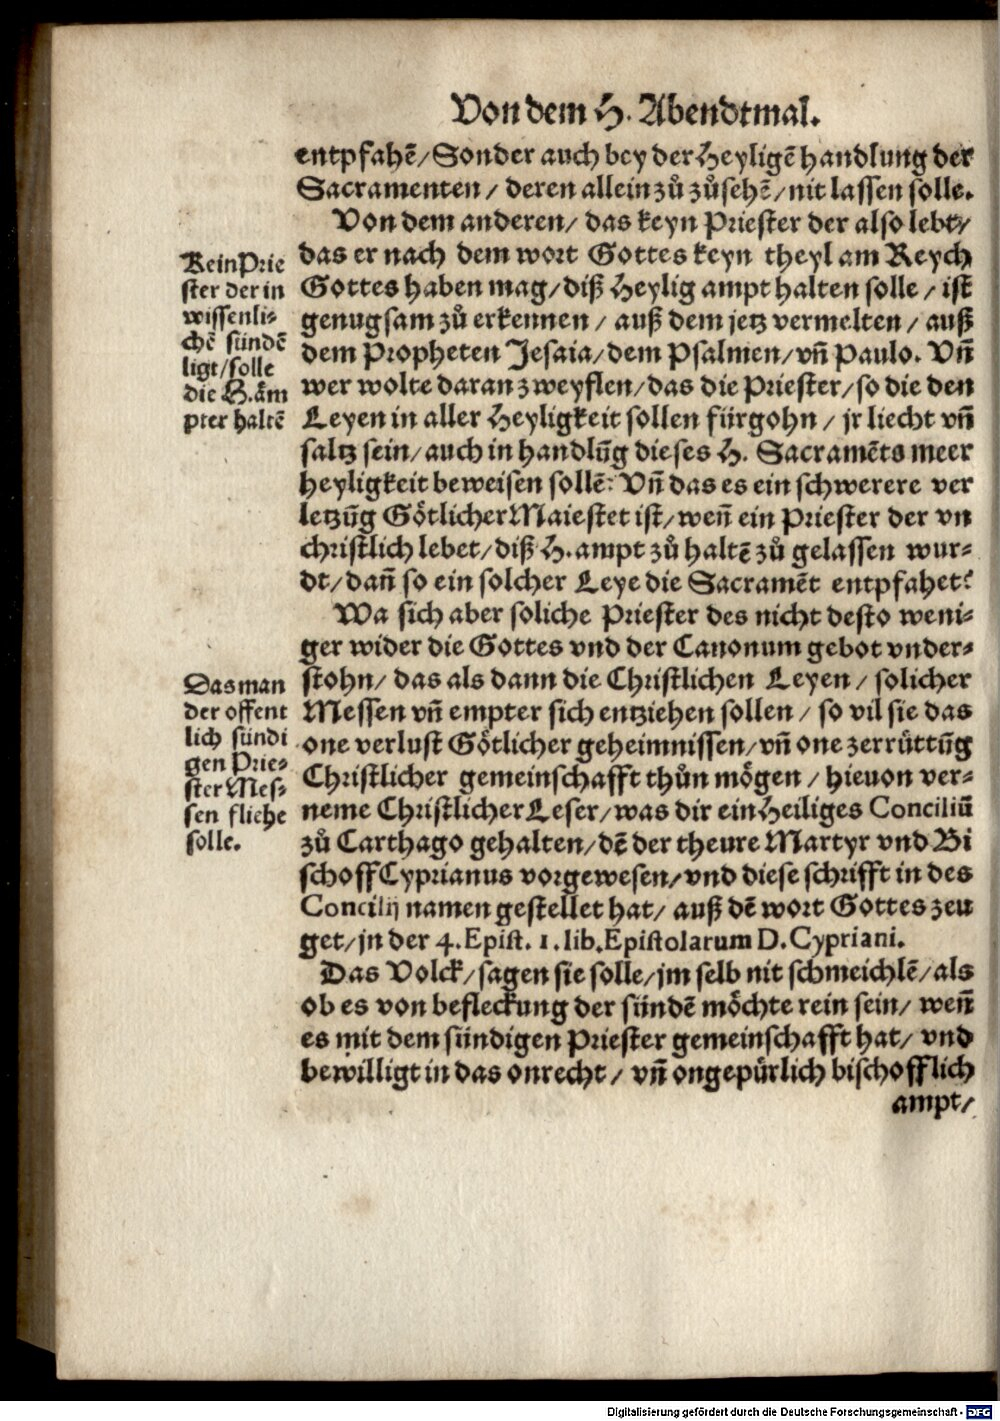 Von dem H. Abendtmal.
entpfahē/ Sonder auch bey der Heyligē handlung der
Sacramenten/ deren allein zů zůsehē/ nit lassen solle.
Von dem anderen/ das keyn Priester der also lebt/
das er nach dem wort Gottes keyn theyl am Reych
Gottes haben mag/ diß Heylig ampt halten solle/ ist
genugsam zů erkennen/ auß dem jetz vermelten/ auß
dem Propheten Jesaia/ dem Psalmen/ vñ Paulo. Vñ
wer wolte daran zweyflen/ das die Priester/ so die den
Leyen in aller Heyligkeit sollen fürgohn/ jr liecht vñ
saltz sein/ auch in handlūg dieses H. Sacramēts meer
heyligkeit beweisen sollē: Vñ das es ein schwerere ver
letzūg Götlicher Maiestet ist/ weñ ein Priester der vn
christlich lebet/ diß H. ampt zů haltē zů gelassen wur-
dt/ dañ so ein solcher Leye die Sacramēt entpfahet?
Wa sich aber soliche Priester des nicht desto weni-
ger wider die Gottes vnd der Canonum gebot vnder-
stohn/ das als dann die Christlichen Leyen/ solicher
Messen vñ empter sich entziehen sollen/ so vil sie das
one verlust Götlicher geheimnissen/ vñ one zerrüttūg
Christlicher gemeinschafft thůn mögen/ hieuon ver-
neme Christlicher Leser/ was dir ein Heiliges Conciliū
zů Carthago gehalten/ dē der theure Martyr vnd Bi
schoff Cyprianus vorgewesen/ vnd diese schrifft in des
Concilij namen gestellet hat/ auß dē wort Gottes zeu
get/ jn der 4. Epist. 1. lib. Epistolarum D. Cypriani.
Das Volck/ sagen sie solle/ jm selb nit schmeichlē/ als
ob es von befleckung der sündē möchte rein sein/ weñ
es mit dem sündigen Priester gemeinschafft hat/ vnd
bewilligt in das onrecht/ vñ ongepürlich bischofflich
ampt/
Kein Prie
ster der in
wissenli-
chē sündē
ligt/ solle
die H. äm
pter haltē
Das man
der offent
lich sündi
gen Prie-
ster Mes-
sen fliehe
solle.
Digitalisierung gefördert durch die Deutsche Forschungsgemeinschaft - DFG